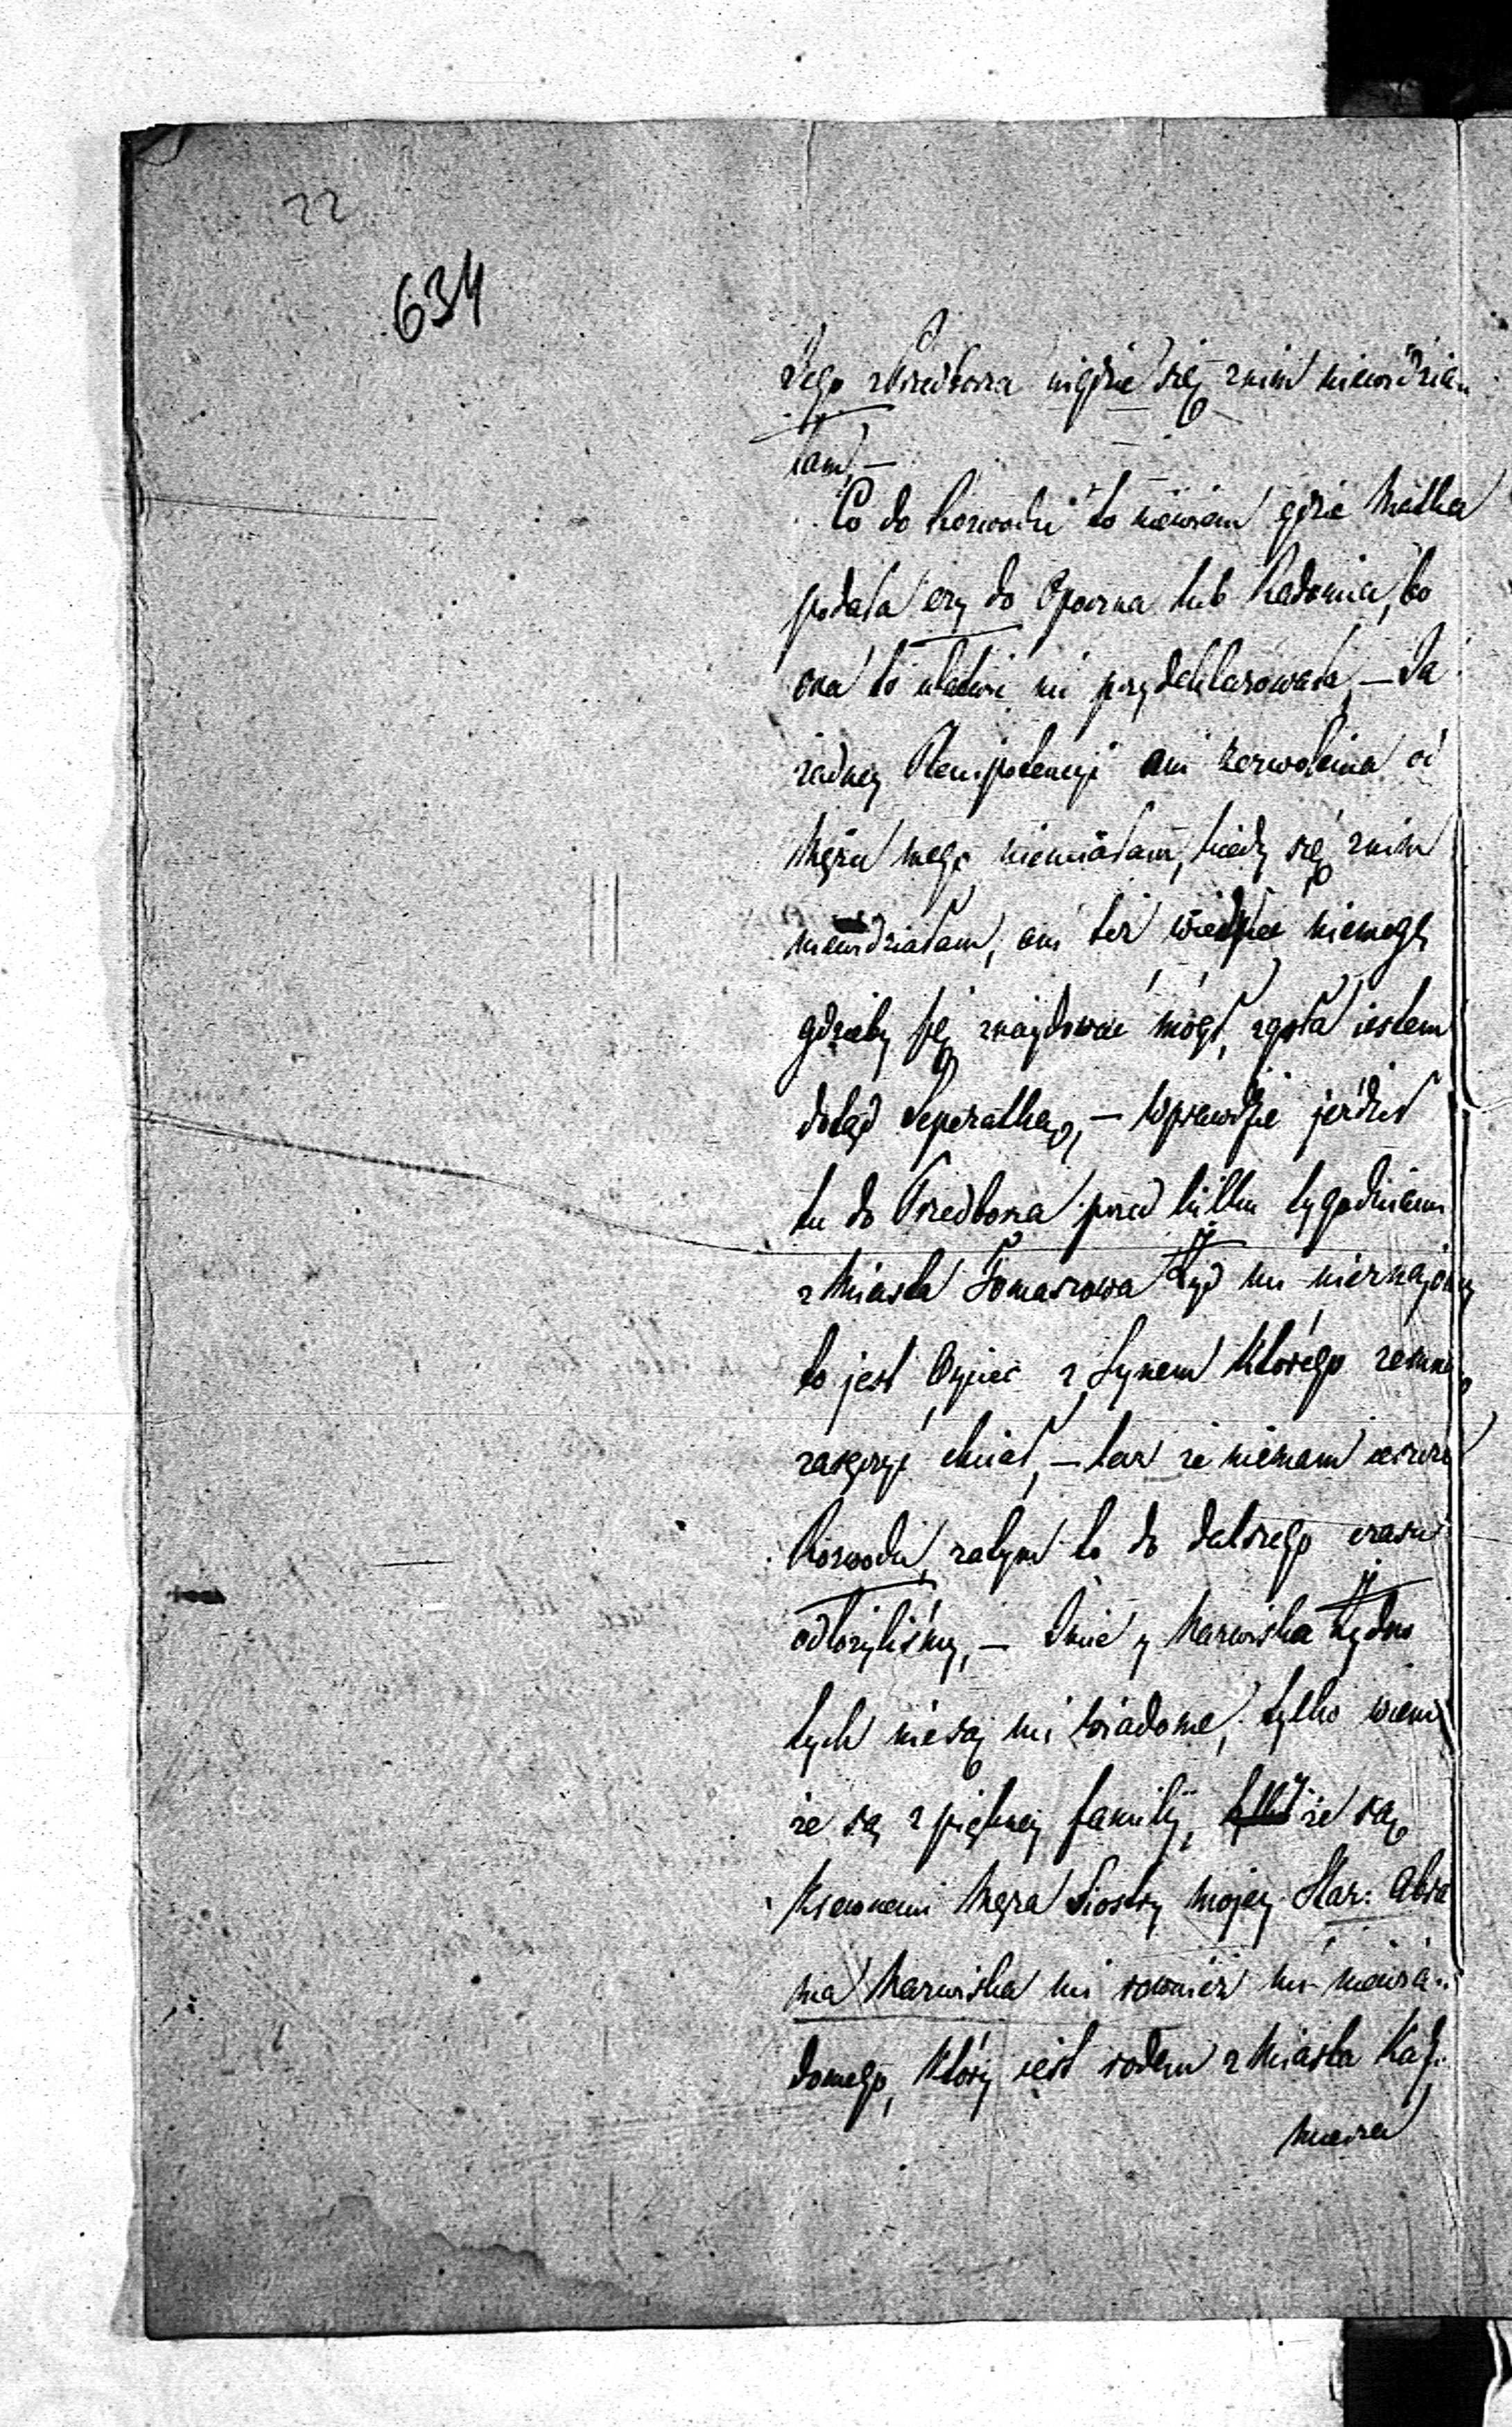 22
634
Jego z Przedborza nigdzie się z nim niewidzia„
łam, —
Co do Rozwodu to niewiem gdzie Matka
podała czy do Opoczna lub Radomia, bo
ona to ułatwić mi przydeklarowała, — Ja
żadney Plenipotencyi ani zezwolenia od
Męża mego niemiałam, kiedy się z nim
niewidziałam, ani też wiedzieć niemogę
gdzieby się znajdować mógł, zgoła iestem
dotąd Seperatką, — wprawdzie jeździł
tu do Przedborza przed kilku tygodniami
z Miasta Tomaszowa Żyd mi nieznajomy
to jest Oyciec z Synem którego zemną
zaręczyć chciał, — lecz że niemam ieszcze
Rozwodu, zatym to do dalszego czasu
odłożyliśmy, — Imie y Nazwiska Żydów
tych niesą mi wiadome, tylko wiem
że są z piękney familii, że są
Krewnemi Męża Siostry mojey Star: Abra
ma Nazwiska mi rownież mi niewia„
domego, który iest rodem z Miasta Kazi„
mierza